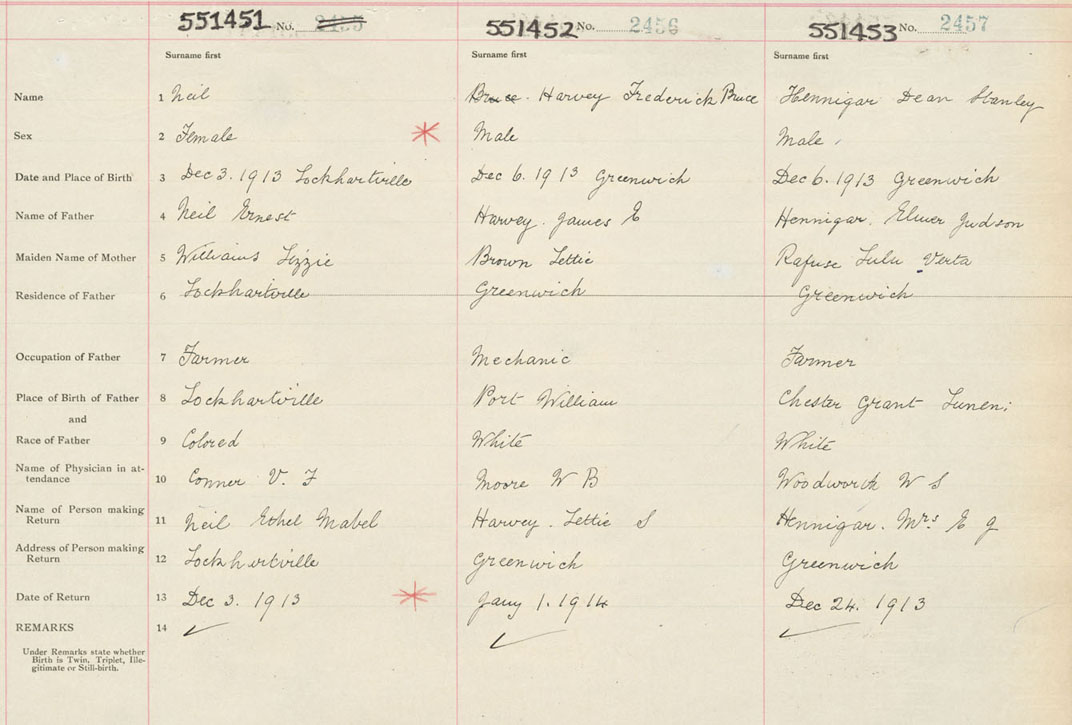 551451 No. 2455 551452 No. 2456 551453 No. 2457
Surname first Surname first Surname first
Name 1 Neil Bruce. Harvey Frederick Bruce Hennigar Dean Stanley
Sex 2 Female Male Male
Date and Place of Birth 3 Dec 3. 1913 Lockhartville Dec 6. 1913 Greenwich Dec 6. 1913 Greenwich
Name of Father 4 Neil Ernest Harvey. James E Hennigar. Elmer Judson
Maiden Name of Mother 5 Williams Lizzie Brown Lettie Rafuse Lulu Verta
Residence of Father 6 Lockhartville Greenwich Greenwich
Occupation of Father 7 Farmer Mechanic Farmer
Place of Birth of Father 8 Lockhartville Port William Chester Grant Lunen:
and
Race of Father 9 Colored White White
Name of Physician in at-
tendance 10 Conner V. F Moore W B Woodworth W S
Name of Person making
Return 11 Neil Ethel Mabel Harvey. Lettie S Hennigar. Mrs E J
Address of Person making
Return 12 Lockhartville Greenwich Greenwich
Date of Return 13 Dec 3. 1913 Jany 1. 1914 Dec 24. 1913
REMARKS 14
Under Remarks state whether
Birth is Twin, Triplet, Ille-
gitimate or Still-birth.